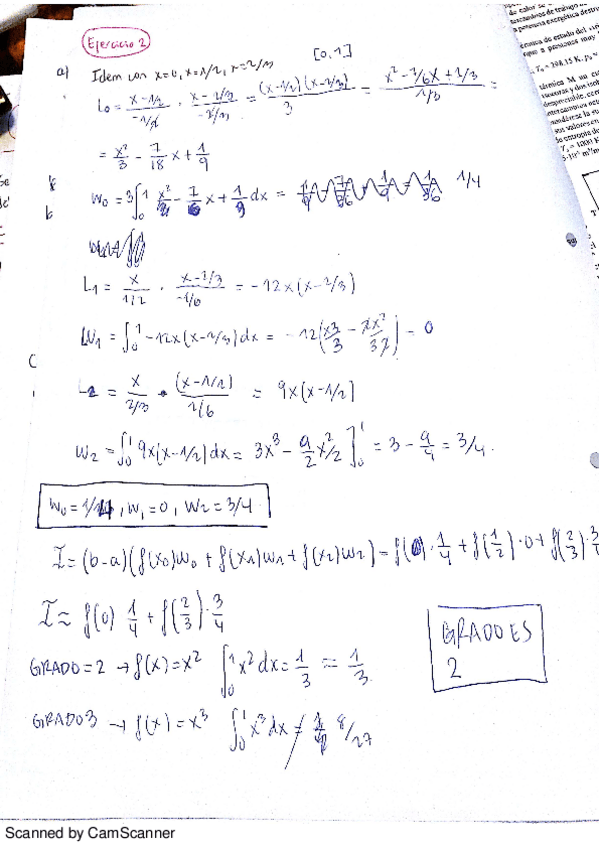 Ejercicio 2
a) Idem con x=0, x=1/2, x=2/3 [0,1]
L₀ = (x-1/2)/(-1/2) · (x-2/3)/(-2/3) = (x-1/2)(x-2/3)/3 = (x²-7/6x+1/3)/(1/3) =
= x²/3 - 7/18 x + 1/9
W₀ = 3∫₀¹ x² - 7/6 x + 1/3 dx = 1/4
L₁ = x/(1/2) · (x-2/3)/(-1/6) = -12x(x-2/3)
W₁ = ∫₀¹ -12x(x-2/3)dx = -12(x3/3 - 2x²/3·2) = 0
L2 = x/(2/3) · (x-1/2)/(1/6) = 9x(x-1/2)
W2 = ∫₀¹ 9x(x-1/2)dx = 3x³ - 9/2 x²/2]₀¹ = 3 - 9/4 = 3/4.
W₀ = 1/4, W₁ = 0, W2 = 3/4
I = (b-a)(f(x₀)W₀ + f(x₁)W₁ + f(x₂)W₂) = f(0)·1/4 + f(1/2)·0 + f(2/3)·3/4
I ≈ f(0) 1/4 + f(2/3)·3/4
GRADO = 2 → f(x) = x² ∫₀¹ x² dx = 1/3 = 1/3.
GRADO ES
2
GRADO 3 → f(x) = x³ ∫₀¹ x³ dx ≠ 8/27
Scanned by CamScanner